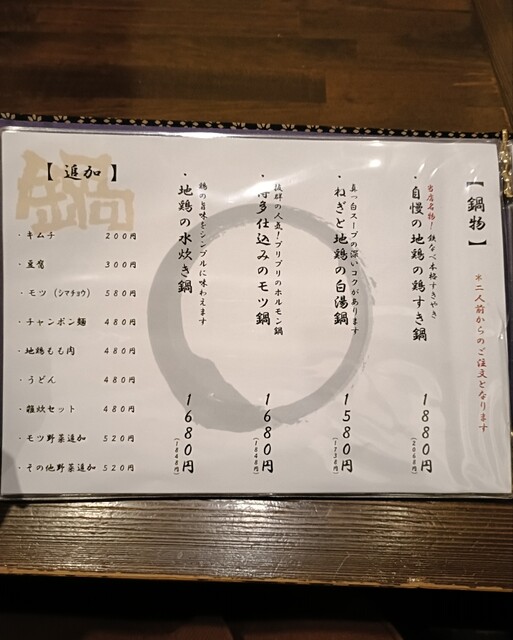 【鍋物】
*二人前からのご注文となります
当店名物!鉄なべ本格すきやき
・自慢の地鶏の鶏すき鍋
1880円
(2068円)
真っ白スープの深いコクがあります
・ねぎと地鶏の白湯鍋
1580円
(1738円)
抜群の人気!プリプリのホルモン鍋
・博多仕込みのモツ鍋
1680円
(1848円)
鶏の旨味をシンプルに味わえます
・地鶏の水炊き鍋
1680円
(1848円)
鍋
【追加】
・キムチ 200円
・豆腐 300円
・モツ(シマチョウ) 580円
・チャンポン麺 480円
・地鶏もも肉 480円
・うどん 480円
・雑炊セット 480円
・モツ野菜追加 520円
・その他野菜追加 520円